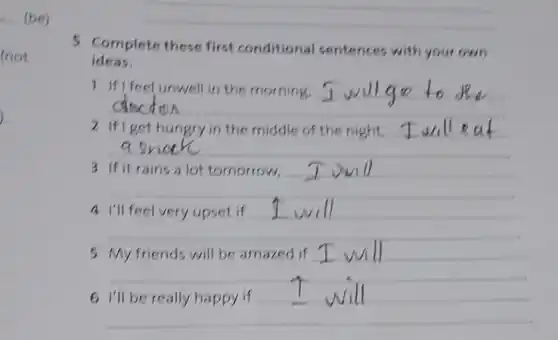 (be)
(not
5 Complete these first conditional sentences with your own
ideas.
1 If I feel unwell in the morning, I will go to the
doctor
2 If I get hungry in the middle of the night, I will eat
a snack
3 If it rains a lot tomorrow, I will
4 I'll feel very upset if I will
5 My friends will be amazed if I will
6 I'll be really happy if I will